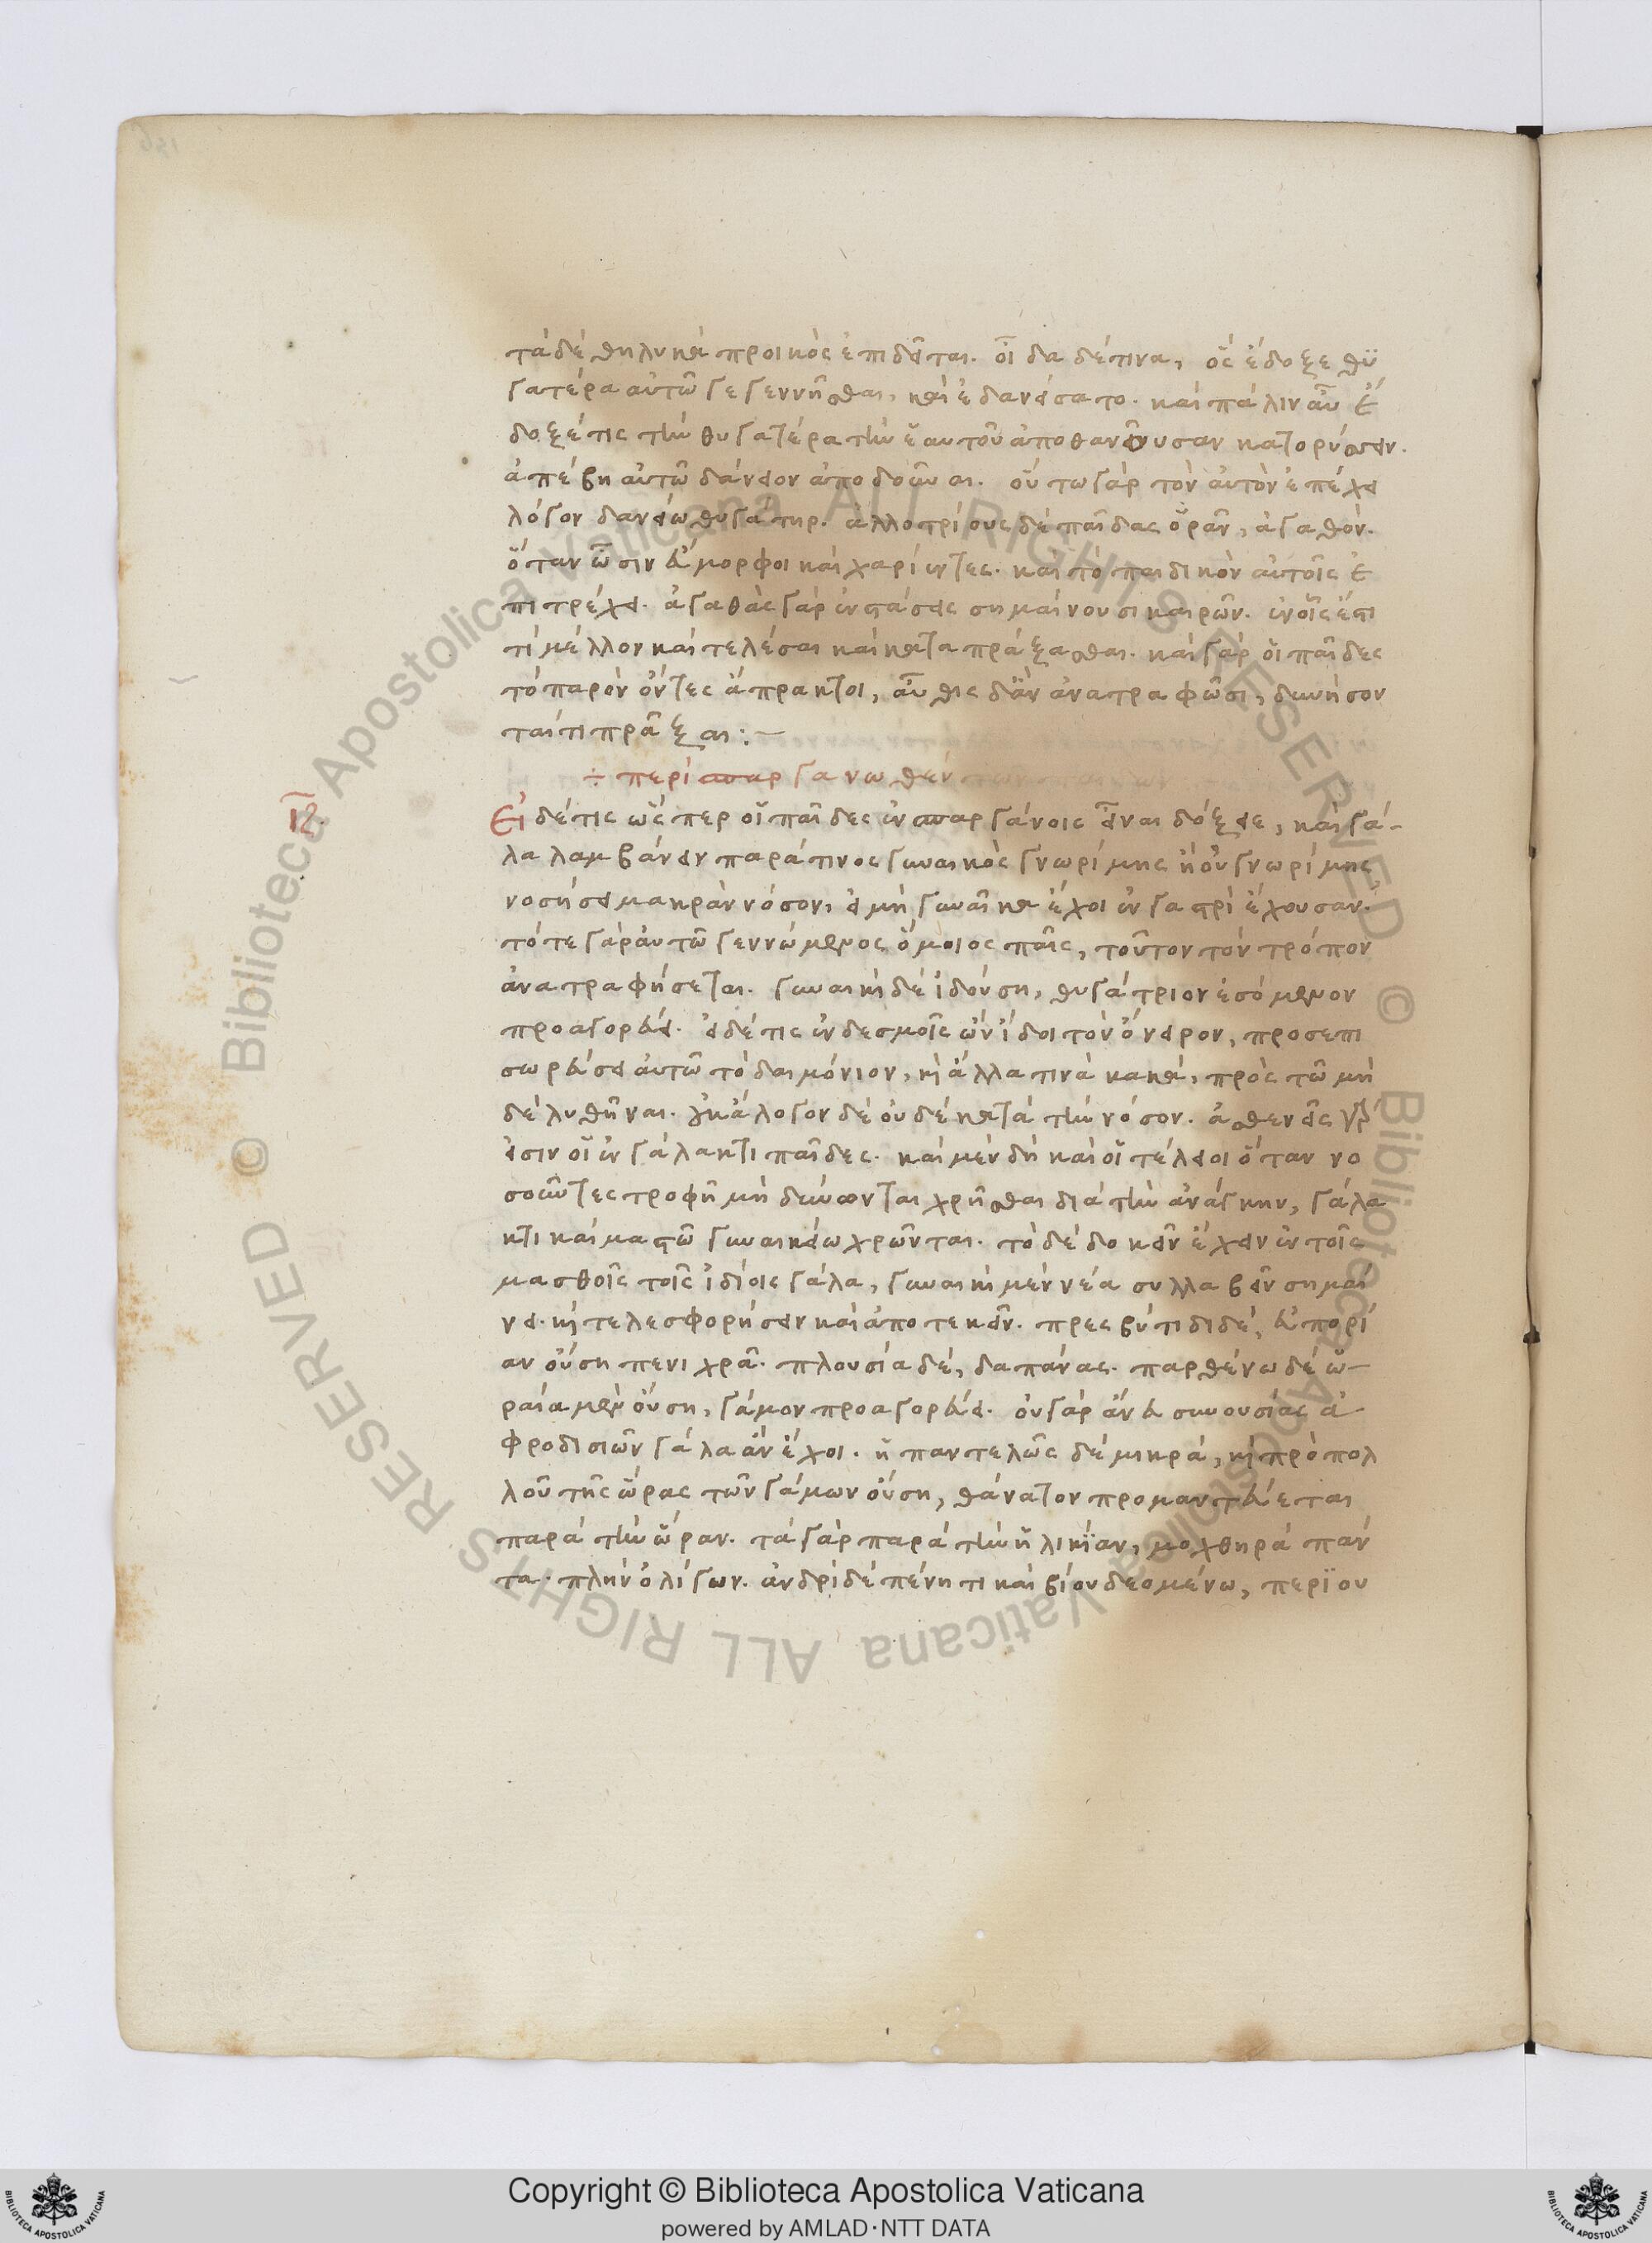 τὰ δὲ θηλυκὰ προικὸς ἐπιδεῖται. οἶδα δέ τινα, ὃς ἔδοξε θυ
γατέρα αὐτῶ γεγεννῆσθαι, καὶ ἐδανείσατο. καὶ πάλιν αὖ ἔ
δοξέ τις τὴν θυγατέρα τὴν ἑαυτοῦ ἀποθανοῦσαν κατορύσσειν.
ἀπέβη αὐτῶ δάνειον ἀποδοῦναι. οὕτω γὰρ τὸν αὐτὸν ἐπέχει
λόγον δανείω θυγάτηρ. ἀλλοτρίους δὲ παῖδας ὁρᾶν, ἀγαθόν.
ὅταν ὦσιν εὔμορφοι καὶ χαρίεντες. καὶ τὸ παιδικὸν αὐτοῖς ἐ
πιτρέχει. ἀγαθὰς γὰρ ἐνστάσεις σημαίνουσι καιρῶν. ἐν οἷς ἔστι
τί μέλλον καὶ τελέσαι καὶ καταπράξασθαι. καὶ γὰρ οἱ παῖδες
τὸ παρὸν ὄντες ἄπρακτοι, αὖθις δ' ἂν ἀνατραφῶσι, δυνήσον
ταί τι πρᾶξαι :-
÷ περὶ σπαργανωθέν
ιϛ.
Εἰ δέ τις ὥσπερ οἱ παῖδες ἐν σπαργάνοις εἶναι δόξειε, καὶ γά-
λα λαμβάνειν παρά τινος γυναικὸς γνωρίμης ἢ οὐ γνωρίμης
νοσήσει μακρὰν νόσον, εἰ μὴ γυναῖκα ἔχοι ἐν γαστρὶ ἔχουσαν.
τότε γὰρ αὐτῶ γεννώμενος ὅμοιος παῖς, τοῦτον τὸν τρόπον
ἀνατραφήσεται. γυναικὶ δὲ ἰδούση, θυγάτριον ἐσόμενον
προαγορεύει. εἰ δέ τις ἐν δεσμοῖς ὢν ἴδοι τὸν ὄνειρον, προσεπι
σωρεύσει αὐτῶ τὸ δαιμόνιον, καὶ ἄλλα τινὰ κακά, πρὸς τῶ μὴ
δὲ λυθῆναι. οὐκ ἄλογον δὲ οὐδὲ κατὰ τὴν νόσον. ἀσθενεῖς γὰρ
εἰσιν οἱ ἐν γάλακτι παῖδες. καὶ μὲν δὴ καὶ οἱ τέλειοι ὅταν νο
σοῦντες τροφῆ μὴ δύνωνται χρῆσθαι διὰ τὴν ἀνάγκην, γάλα
κτι καὶ μαστῶ γυναικείω χρῶνται. τὸ δὲ δοκεῖν ἔχειν ἐν τοῖς
μασθοῖς τοῖς ἰδίοις γάλα, γυναικὶ μὲν νέα συλλαβεῖν σημαί
νει. καὶ τελεσφορήσειν καὶ ἀποτεκεῖν. πρεσβύτιδι δὲ, εὐπορί
αν οὔση πενιχρᾶ. πλουσία δέ, δαπάνας. παρθένω δὲ ὡ-
ραία μὲν οὔση, γάμον προαγορεύει. οὐ γὰρ ἄνευ συνουσίας ἀ-
φροδισιῶν γάλα ἂν ἔχοι. ἢ παντελῶς δὲ μικρά, καὶ πρὸ πολ
λοῦ τῆς ὥρας τῶν γάμων οὔση, θάνατον προμαντεύεται
παρὰ τὴν ὥραν. τὰ γὰρ παρὰ τὴν ἡλικίαν, μοχθηρὰ πάν
τα. πλὴν ὀλίγων. ἀνδρὶ δὲ πένητι καὶ βίου δεομένω, περιου
Copyright © Biblioteca Apostolica Vaticana
powered by AMLAD·NTT DATA